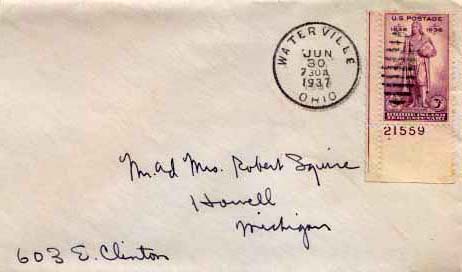 WATERVILLE
JUN
30
730A
1937
OHIO
U.S. POSTAGE
1636 1936
3¢
RHODE ISLAND
TERCENTENARY
21559
Mr. and Mrs. Robert Squire
Howell
Michigan
603 E. Clinton